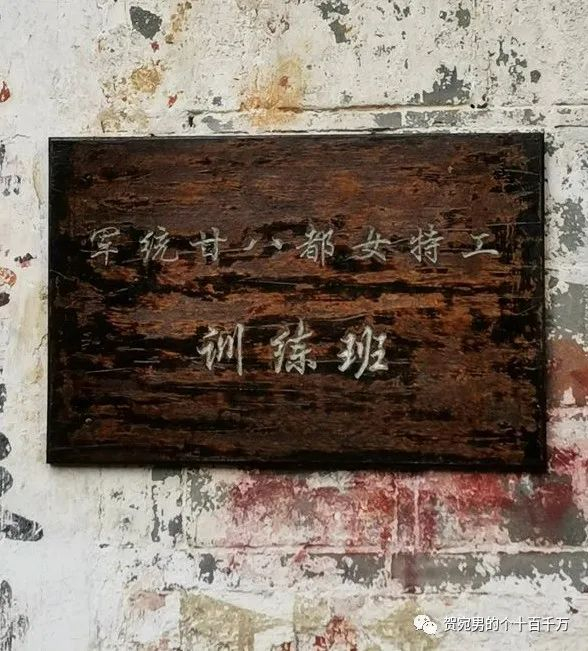 军统甘八都女特工
训练班
贺宛男的个十百千万